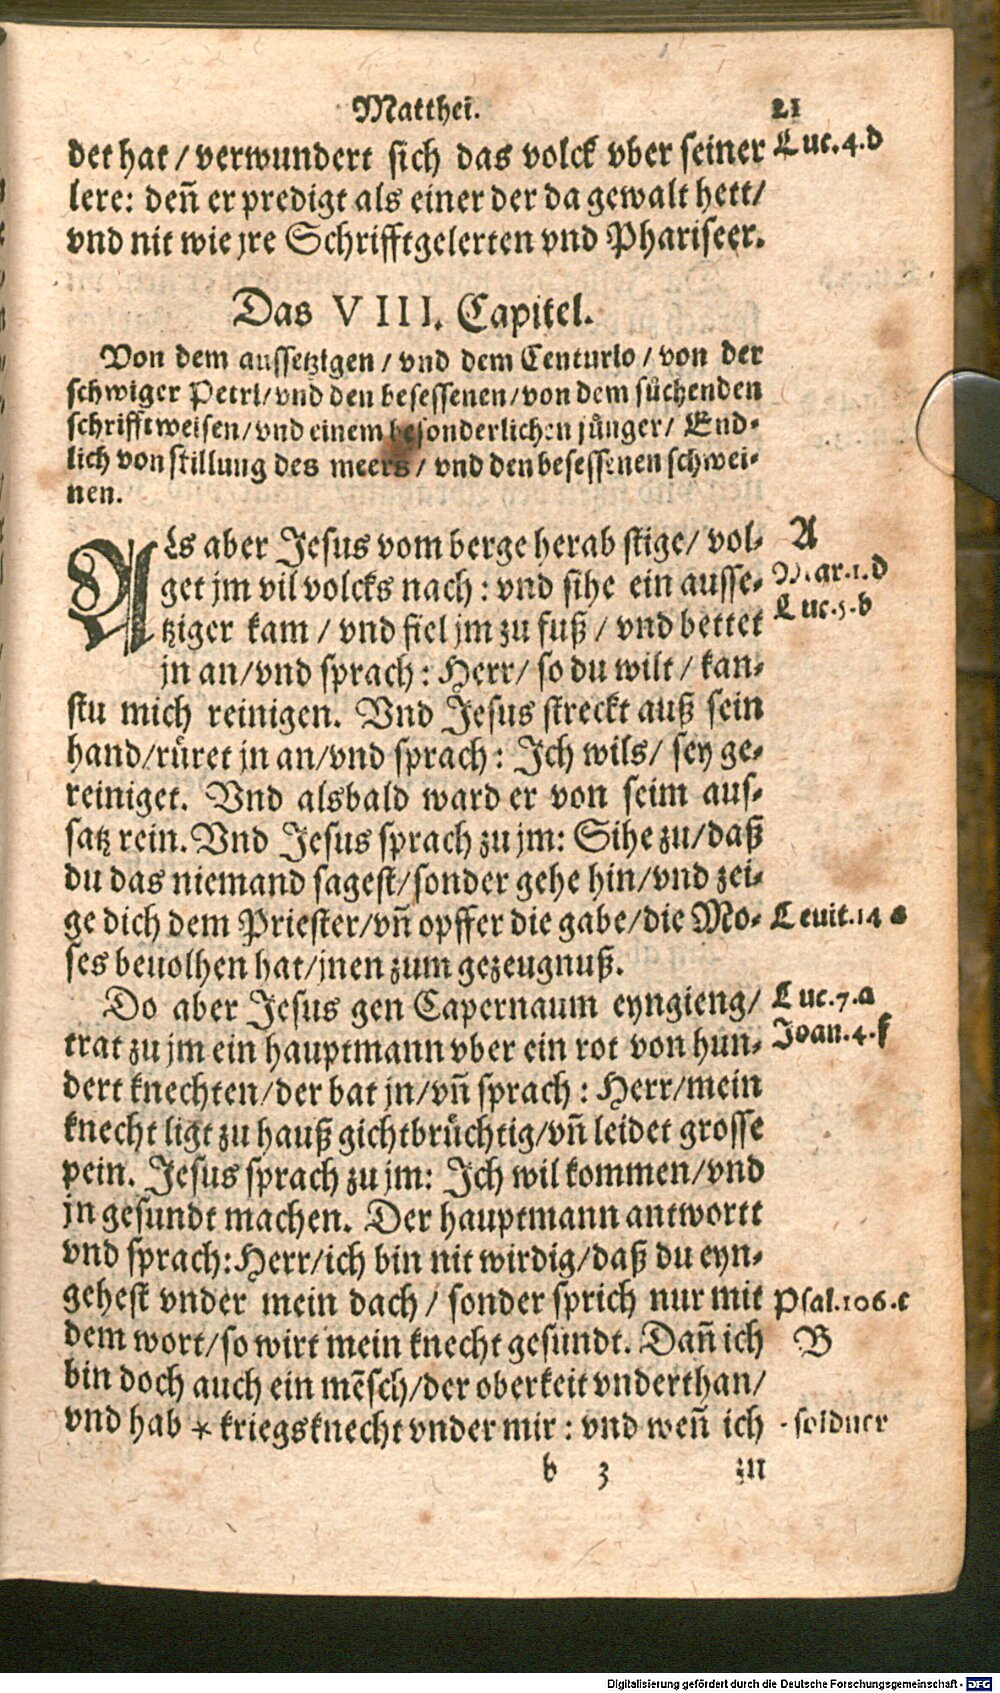 Matthei. 21
det hat / verwundert sich das volck vber seiner Luc.4.d
lere: deñ er predigt als einer der da gewalt hett/
vnd nit wie jre Schrifftgelerten vnd Phariseer.
Das VIII. Capitel.
Von dem aussetzigen / vnd dem Centurio / von der
schwiger Petri/vnd den besessenen/von dem sůchenden
schrifftweisen/vnd einem besonderlichen jůnger/ End-
lich von stillung des meers/ vnd den besessenen schwei-
nen.
ALs aber Jesus vom berge herab stige/ vol- A
get jm vil volcks nach : vnd sihe ein ausse- Mar.1.d
tziger kam / vnd fiel jm zu fuß / vnd bettet Luc.5.b
jn an/vnd sprach : Herr/ so du wilt/ kan-
stu mich reinigen. Vnd Jesus streckt auß sein
hand/růret jn an/vnd sprach : Ich wils/ sey ge-
reiniget. Vnd alsbald ward er von seim aus-
satz rein. Vnd Jesus sprach zu jm: Sihe zu/daß
du das niemand sagest/sonder gehe hin/vnd zei-
ge dich dem Priester/vñ opffer die gabe/die Mo- Leuit.14 a
ses beuolhen hat/jnen zum gezeugnuß.
Do aber Jesus gen Capernaum eyngieng/ Luc.7.a
trat zu jm ein hauptmann vber ein rot von hun- Joan.4.f
dert knechten/der bat jn/vñ sprach : Herr/mein
knecht ligt zu hauß gichtbrůchtig/vñ leidet grosse
pein. Jesus sprach zu jm: Ich wil kommen/vnd
jn gesundt machen. Der hauptmann antwortt
vnd sprach: Herr/ich bin nit wirdig/daß du eyn-
gehest vnder mein dach / sonder sprich nur mit Psal.106.c
dem wort/so wirt mein knecht gesundt. Dañ ich B
bin doch auch ein mẽsch/der oberkeit vnderthan/
vnd hab * kriegsknecht vnder mir : vnd weñ ich · soldner
b 3 zu
Digitalisierung gefördert durch die Deutsche Forschungsgemeinschaft - DFG